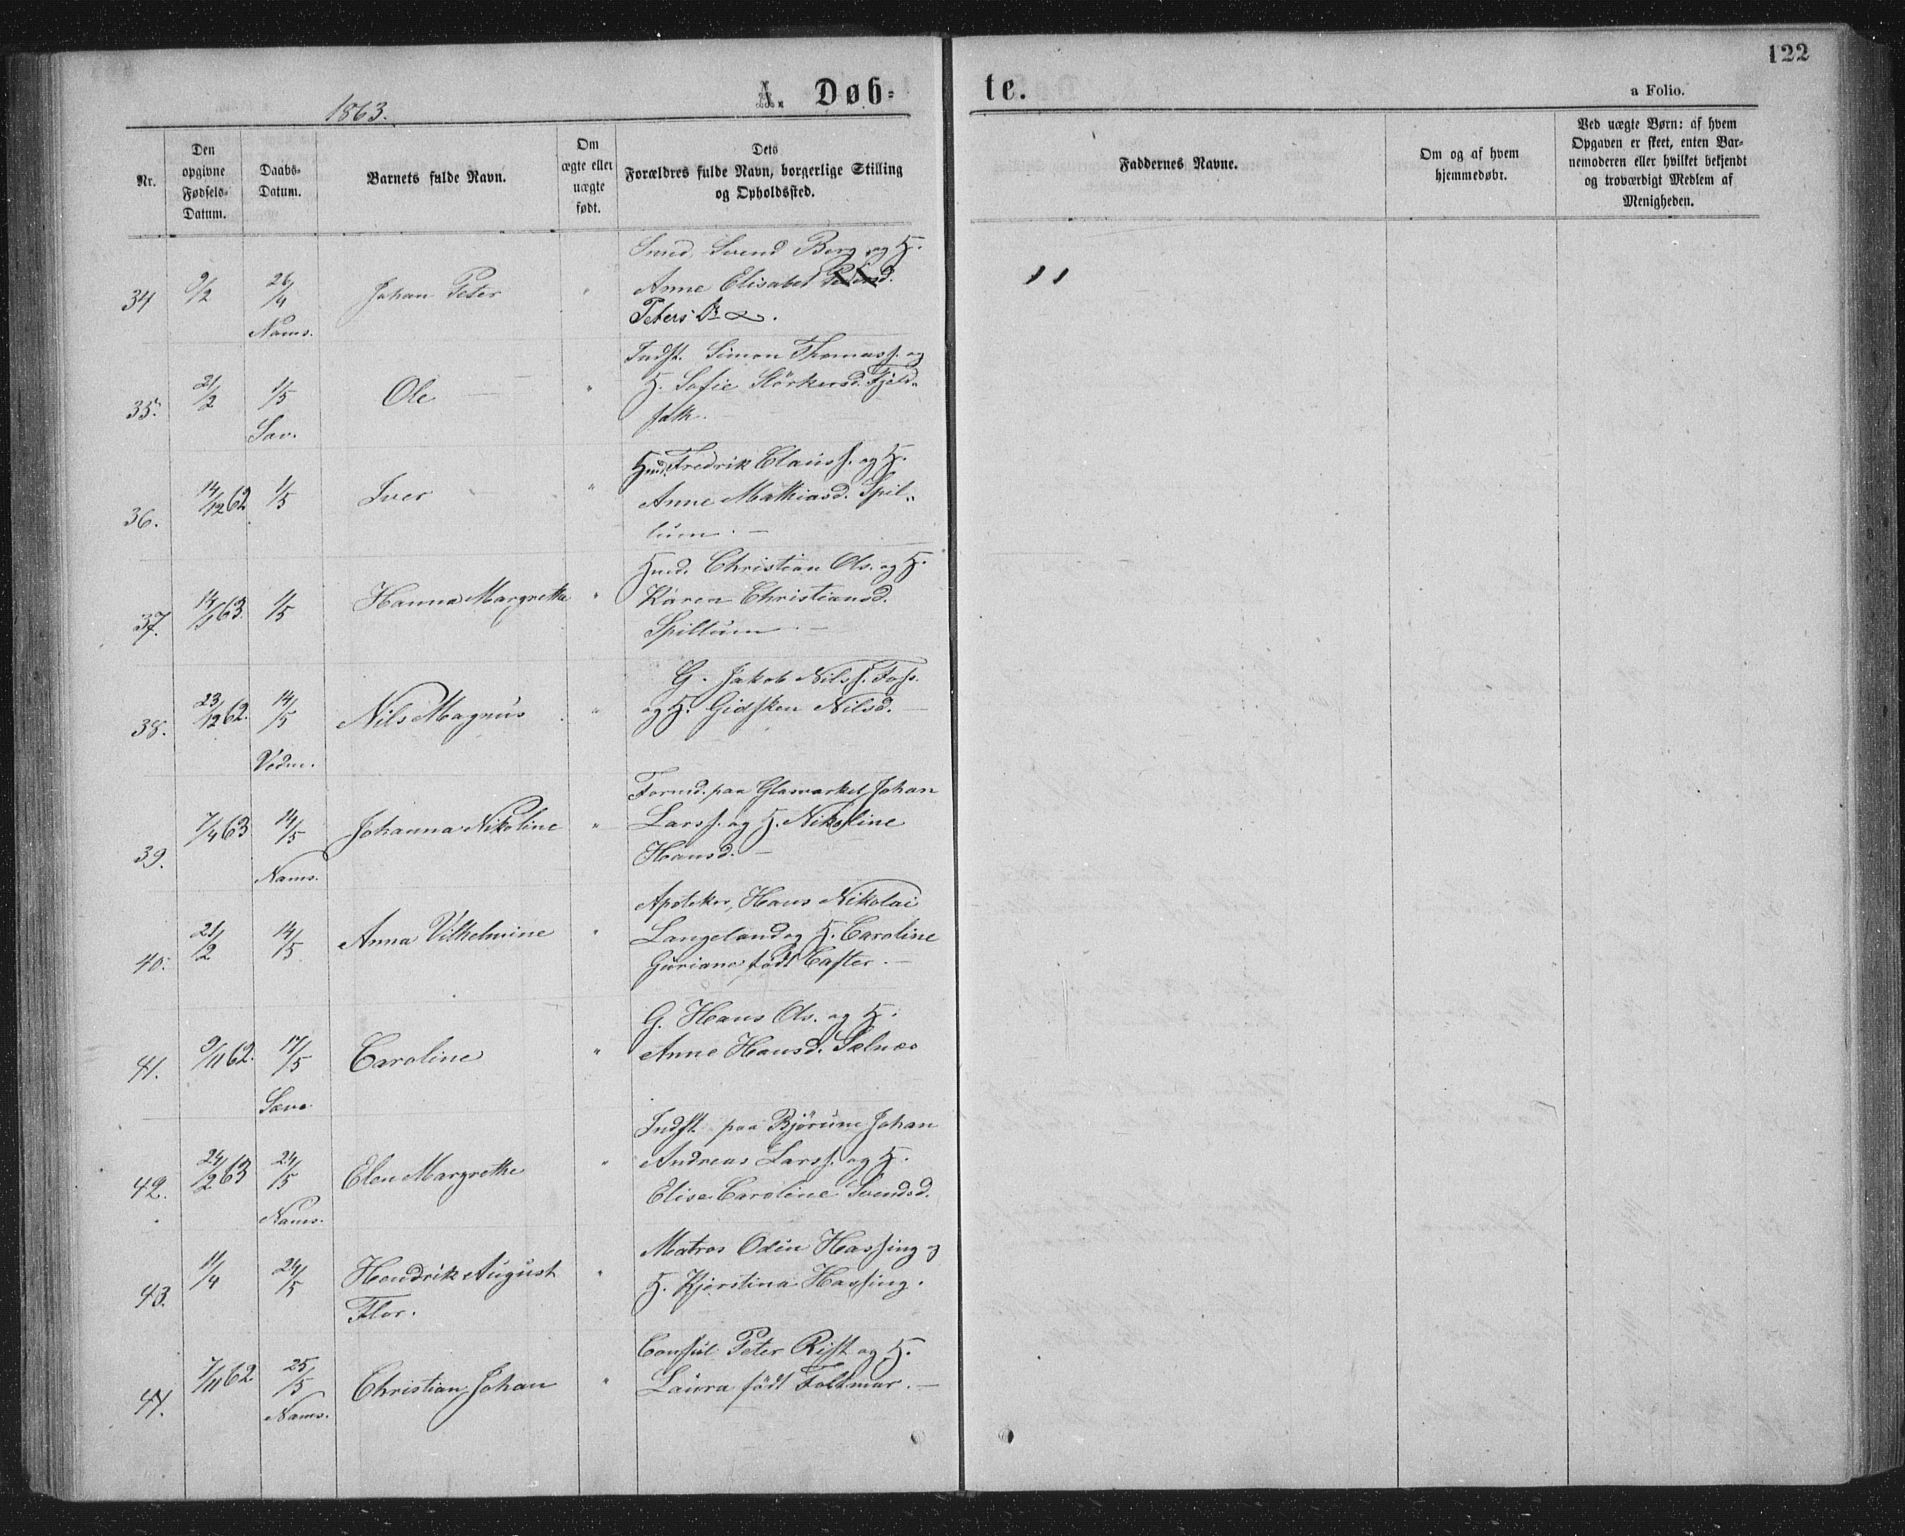 122
1863.
A. Døb-
te.
a Folio.
Nr.
Den opgivne Fødsels-Datum.
Daabs-Datum.
Barnets fulde Navn.
Om ægte eller uægte født.
Dets Forældres fulde Navn, borgerlige Stilling og Opholdssted.
Faddernes Navne.
Om og af hvem hjemmedøbt.
Ved uægte Børn: af hvem Opgaven er skeet, enten Barnemoderen eller hvilket bekjendt og troværdigt Medlem af Menigheden.
Smed Svend Berg og H.
34 9/2 26/4 Johan Peter " Anne Elisabet
Nams. Peters Dr
Indst. Simon Thomass. og
35. 21/2 1/5 Ole " H. Sofie Störkersd. Fjeld-
Sav. fak.
Hmd. Fredrik Clauss. og H.
36. 14/12 62 1/5 Iver " Anne Mathiasd. Spil-
lum. —
Hmd. Christian Ols. og H.
37. 14/1 63. 1/5 Hanna Margrethe " Karen Christiansd.
Spillum —
G. Jakob Nilss. Foss
38. 23/12 62. 14/5 Nils Magnus " og H. Gidsken Nilsd. —
Vedm.
Formd. paa Glasvarket Johan
39. 7/4 63 14/5 Johanna Nikoline " Larss. og H. Nikoline
Nams. Hansd. —
Apoteker, Hans Nikolai
40. 21/2 14/5 Anna Vilhelmine " Langeland og H. Caroline
Guriane født —
G. Hans Ols. og H.
41. 9/11 62. 17/5 Caroline " Anne Hansd. Sælnæs
Sæva
Indst. paa Bjørum Johan
42. 24/2 63 24/5 Elen Margrethe " Andreas Larss. og H.
Nams. Elise Caroline Svendsd.
Matros Odin Hassing og
43. 11/4 24/5 Hendrik August " H. Kjerstina Hassing.
Flor.
Consul Peter Rist og H.
44. 7/11 62 25/5 Christian Johan " Laura født Foltmar. —
Nams.